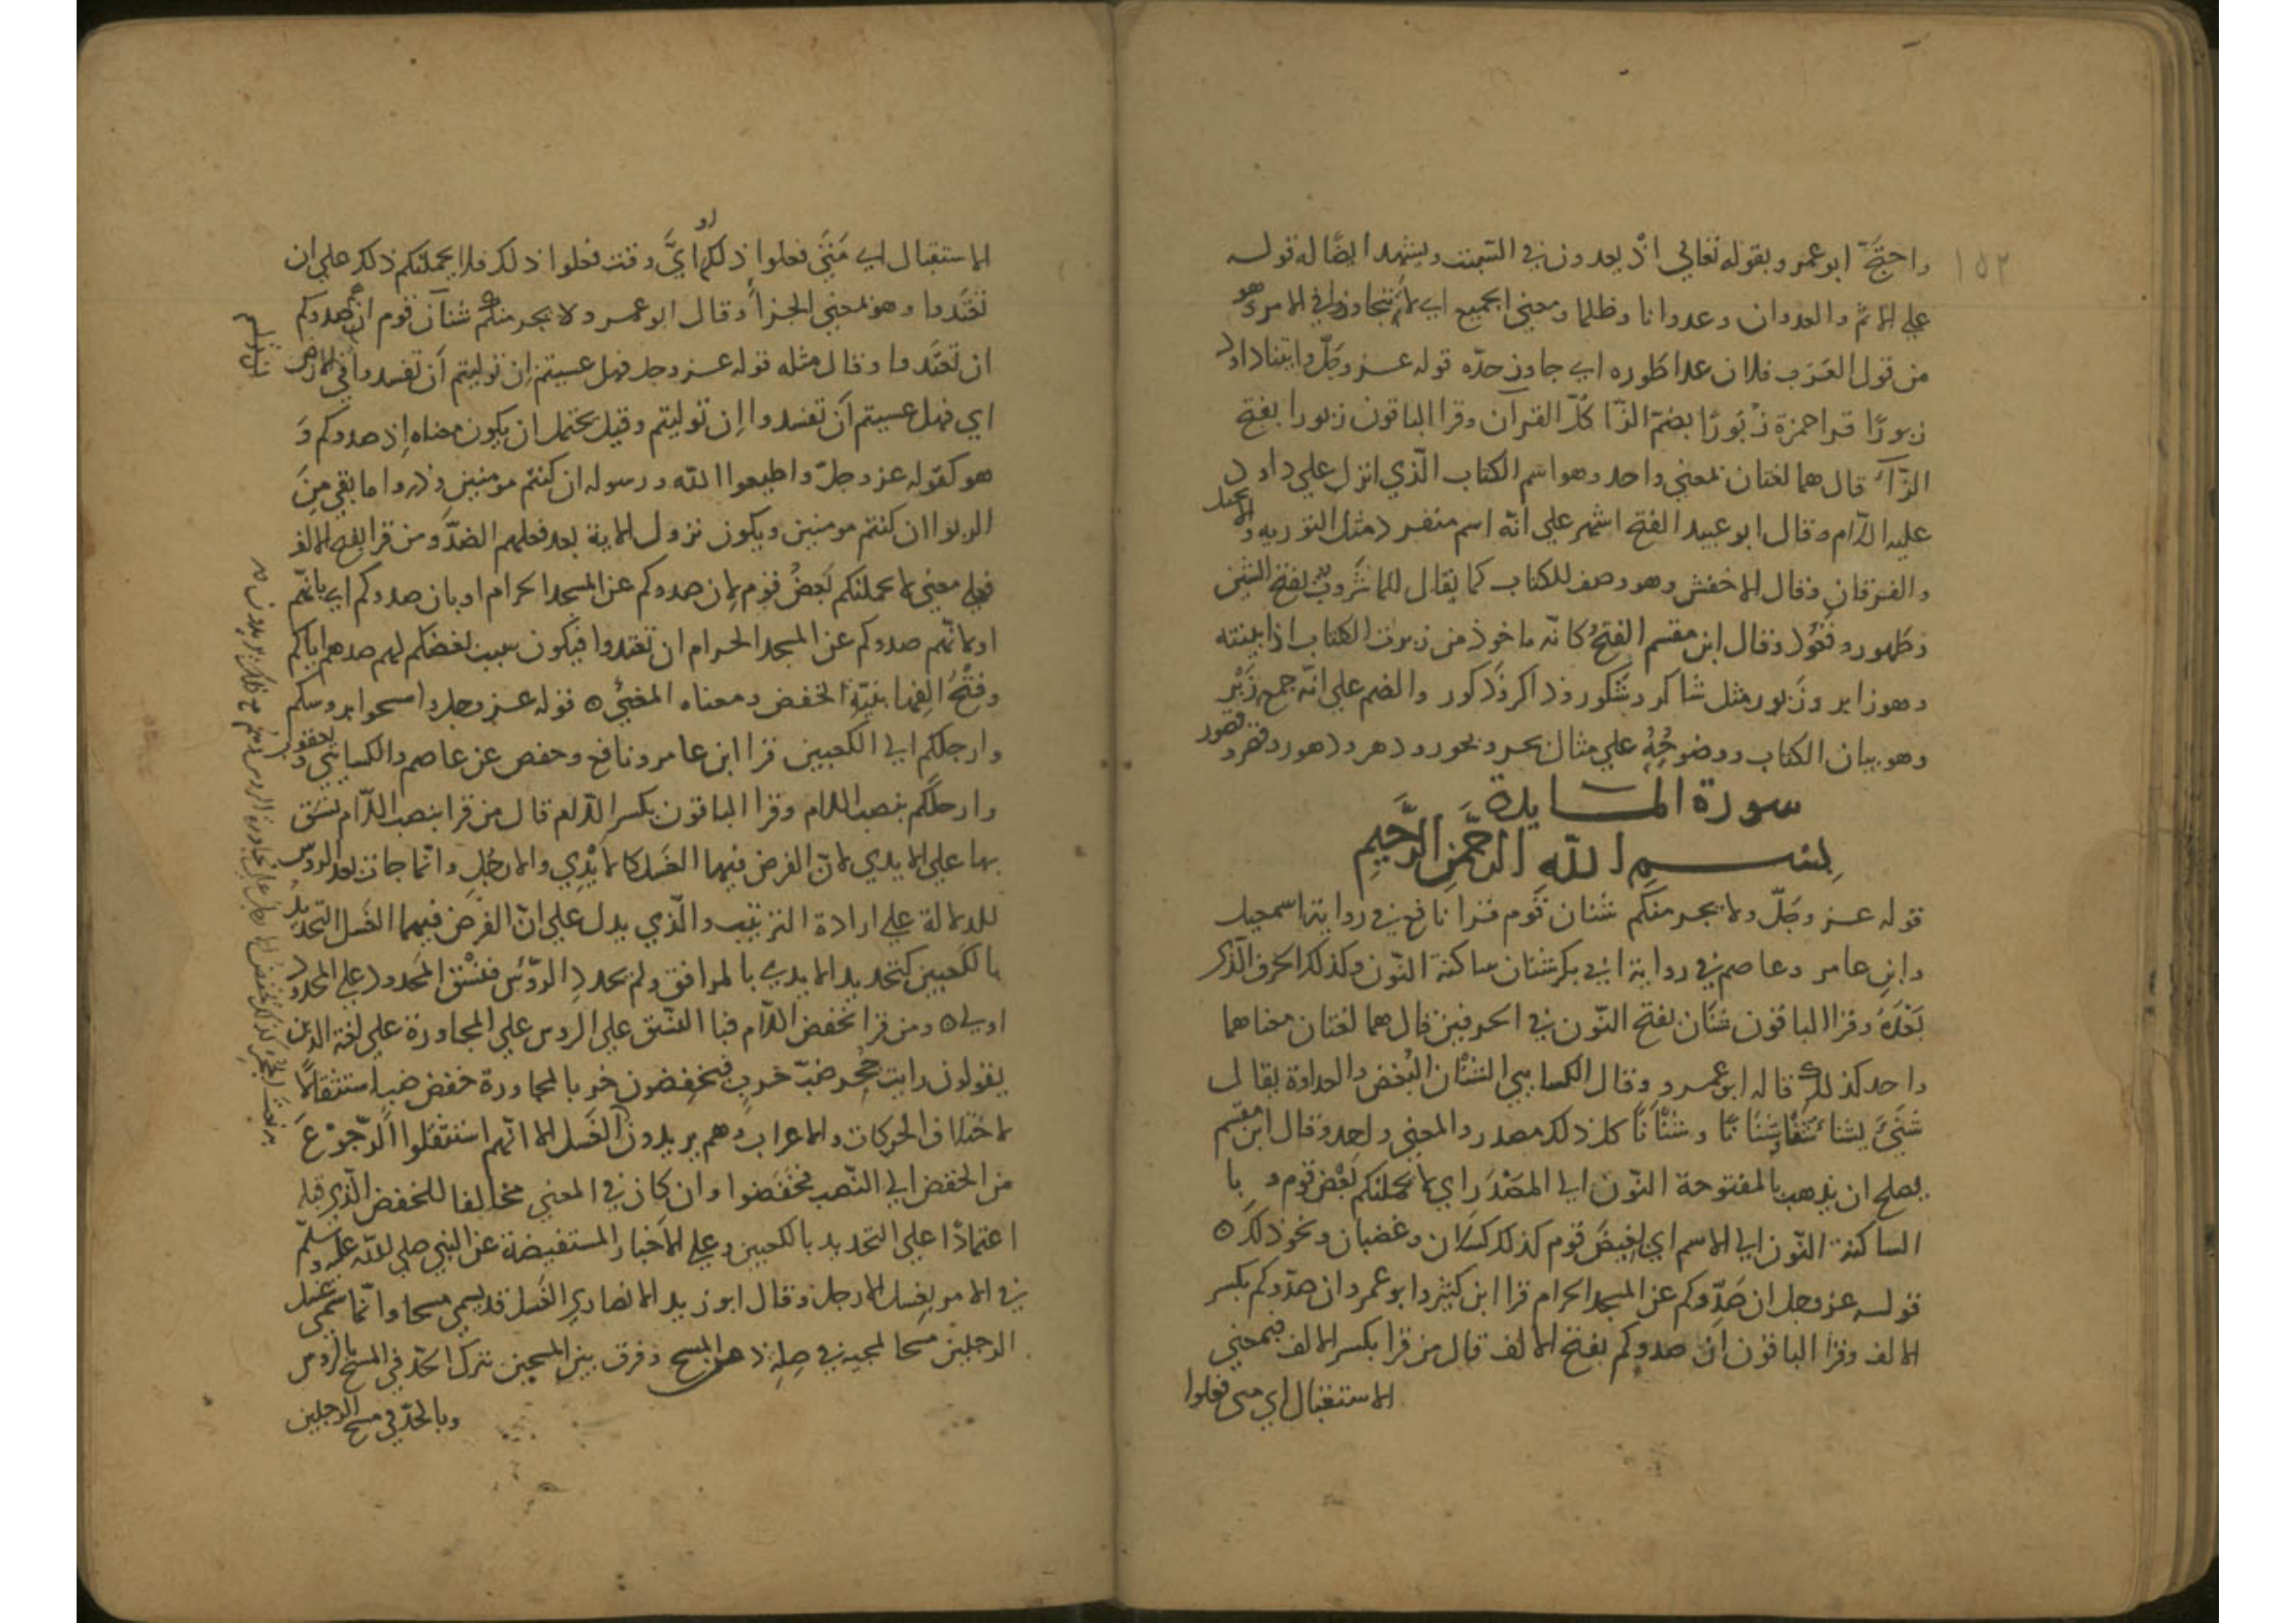 ١٥٢
واحتجّ ابو عمرو بقوله تعالي اذ يعدون في السّبت ويشهد ايضا له قوله
علي الاثم والعدوان وعدوانا وظلما ومعني الجميع اي لا تتجاوزوا في الامر وهو
من قول العَرَب فلان عدا طَوره اي جاوز حدّه قوله عز وجَلّ واتينا داود
زبورًا قرا حمزة زُبُورًا بضمّ الزّا كلّ القرآن وقرا الباقون زبورا بفتح
الزّاء قال هما لغتان بمعني واحد وهو اسم الكتاب الّذي انزل علي داود
عليه السلام وقال ابو عبيد الفتح اشهر علي انّه اسم منفرد مثل التوريه والانجيل
والفرقان وقال الاخفش وهو وصف للكتاب كما يقال للما شَروبٌ بفتح الشين
وطهور وقال ابن مقسم الفتحُ كانّه ماخوذ من زبرت الكتاب اذا بينته
وهو زابر وزَبور مثل شاكر وشكور وذاكر وذَكور والضم علي انّه جمع زَبْر
وهو بيان الكتاب ووضوحُهُ علي مثال بحر وبحور ودهر ودهور وقصر وقصور
سورة المايدة
بِسم اللّه الرّحمن الرّحيم
قوله عز وجَلّ ولا يجرمنكم شنان قوم قرا نافع في رواية اسمعيل
وابن عامر وعاصم في رواية ابي بكر شنان ساكنة النّون وكذلك الحرف الّذي
بَعْدَهُ وقرا الباقون شنَان بفتح النّون في الحرفين قال هما لغتان معناهما
واحد كذلك قاله ابو عمرو وقال الكسايي الشنْان البُغض والعداوة يقال
شنئَ يشنا شنَانًا وشنْانًا كل ذلك مصدر والمعني واحد وقال ابن مقسم
يصلح ان يذهب بالمفتوحة النّون الي المصْدَر اي لا يحملنكم بُغْض قوم و با
الساكنة النّون الي الاسم اي بغيض قوم كذلك كسلان وغضبان ونحو ذلك ه
قوله عز وجل ان صَدّوكم عن المسجد الحرام قرا ابن كثير وابو عمرو ان صدّوكم بكسر
الالف وقرا الباقون ان صدوكم بفتح الالف قال من قرا بكسر الالف فبمعني
الاستقبال اي متي فعلوا
الاستقبال اي مَتَي فعلوا ذلك او ايَّ وقت فعلوا ذلك فلا يحملنكم ذلك علي ان
تعتَدوا وهو بمعني الجزا وقال ابو عمرو ولا يجرمنكم شنآن قوم ان صدوكم
ان تعتَدوا وقال مثله قوله عز وجل فهل عسيتم ان توليتم ان تفسدوا في الارض
اي فهل عسيتم ان تفسدوا ان توليتم وقيل يحتمل ان يكون معناه اذ صدوكم وَ
هو كقوله عز وجلّ واطيعوا اللّه ورسوله ان كنتم مومنين وذروا ما بقي مِنَ
الربوا ان كنتم مومنين ويكون نزول الاية بعد فعلهم الصَدّ ومن قرا بفتح الالف
فعلي معني لا يحملنكم بُغضُ قوم لان صدوكم عن المسجد الحرام او بان صدوكم اي بانّهم
او لانّهم صدوكم عن المسجد الحرام ان تعتدوا فيكون سبب بغضكم لهم صدهم اياكم
وفتْحُ الف بنيّة الخفض ومعناه المضيّ ه قوله عز وجل وامسحوا بروسكم
وارجلكم الي الكعبين قرا ابن عامر ونافع وحفص عن عاصم والكسايي ويعقوب
وارجلَكم بنصب اللام وقرا الباقون بكسر اللام قال من قرا بنصب اللّام نسَق
بها علي الايدي لانّ الفرض فيهما الغَسل كالايْدِي والارجُل وانّما جات بعد الروس
للدلالة علي ارادة الترتيب والّذي يدل علي انّ الفرض فيهما الغَسل التحديدُ
بالكعبين كتحديد الايدي بالمرافق ولم يحدد الرّوُس فنسْق المحدود علي المحدود
اولي ه ومن قرا بخفض اللّام فبا النسق علي الروس علي المجاورة علي لغة الذين
يقولون رايت جُحر ضبّ خربٍ فيخفضون خرب بالمجاورة خفض ضبا استثقالًا
لاختلاف الحركات والاعراب وهم يريدون الغَسل الا انّهم استثقلوا الرّجوْعَ
من الخفض الي النّصب فخفَضوا وان كان في المعني مخالفا للخفض الّذي قبله
اعتمادًا علي التحديد بالكعبين وعلي الاخبار المستفيضة عن النبي صلي اللّه عليه وسلّم
في الامر بغسل الارجل وقال ابو زيد الانصاري الغَسل قد يسمي مسحا وانّما سمي غسل
الرجلين مسحا لمجيه في صلة ذكر المسح وفرق بين المسحين بترك الحَدّ في المسح بالروس
وبالحدّ في مسح الرجلين